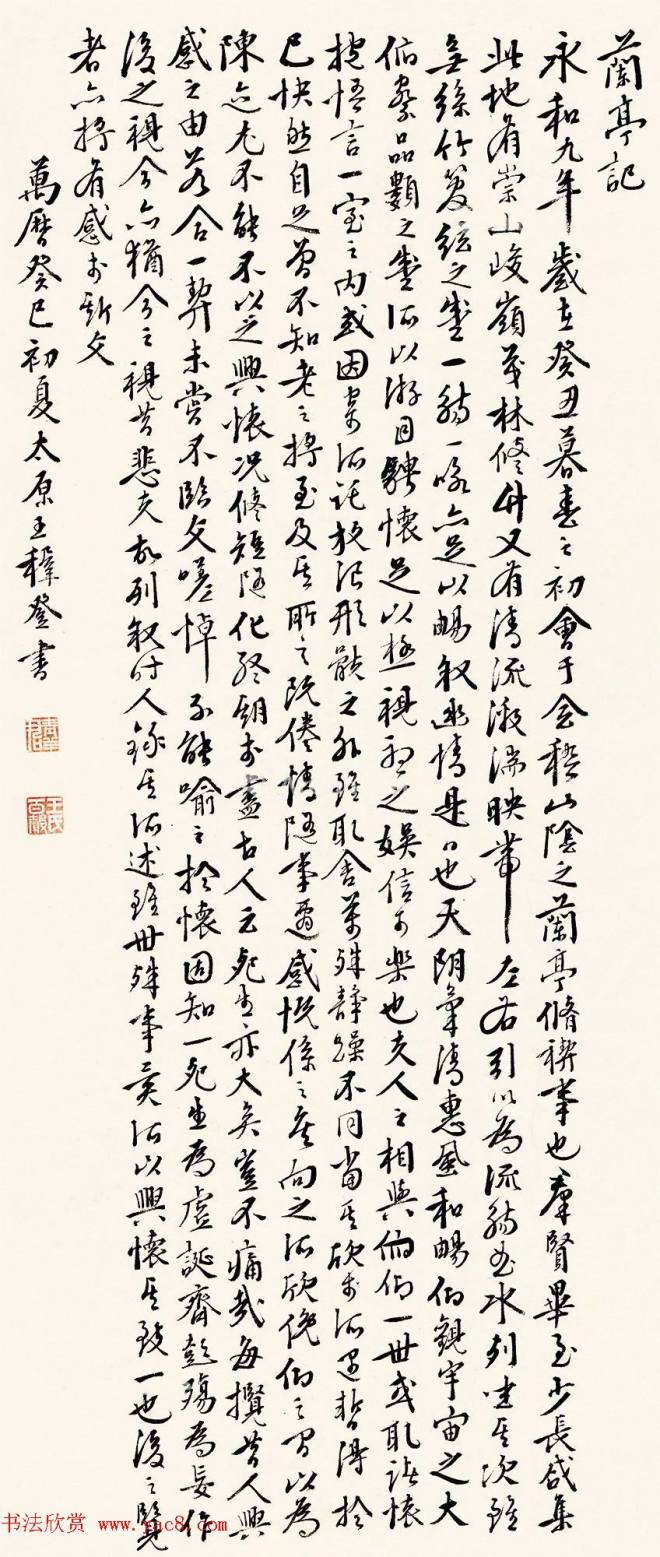 蘭亭記
永和九年歲在癸丑暮春之初會于會稽山陰之蘭亭脩禊事也羣賢畢至少長咸集
此地有崇山峻嶺茂林修竹又有清流激湍映帶左右引以為流觴曲水列坐其次雖
無絲竹管絃之盛一觴一詠亦足以暢敘幽情是日也天朗氣清惠風和暢仰觀宇宙之大
俯察品類之盛所以游目騁懷足以極視聽之娛信可樂也夫人之相與俯仰一世或取諸懷
抱悟言一室之內或因寄所託放浪形骸之外雖取舍萬殊靜躁不同當其欣於所遇暫得於
己快然自足曾不知老之將至及其所之既倦情隨事遷感慨係之矣向之所欣俛仰之間以為
陳迹尤不能不以之興懷況修短隨化終期於盡古人云死生亦大矣豈不痛哉每攬昔人興
感之由若合一契未嘗不臨文嗟悼不能喻之於懷固知一死生為虛誕齊彭殤為妄作
後之視今亦猶今之視昔悲夫故列敘時人錄其所述雖世殊事異所以興懷其致一也後之覽
者亦將有感於斯文
萬曆癸巳初夏太原王穉登書
王氏百穀
书法欣赏 www.yac8.com